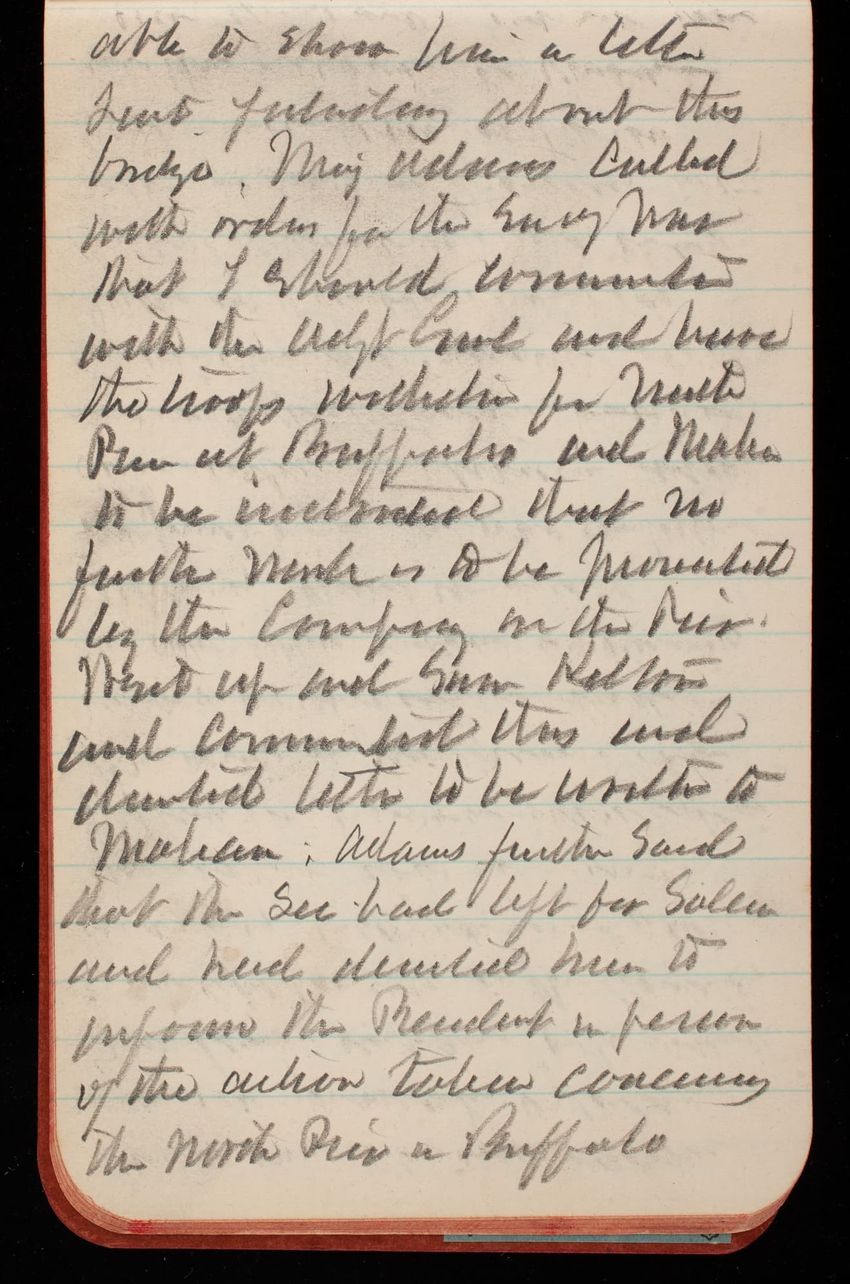 able to show him a letter
sent yesterday about this
bridge. Maj Adams called
with orders from the Secy War
that I should communicate
with the Adjt Genl and have
the troops withdrawn from North
Pier at Buffalo and Mahan
to be instructed that no
further work is to be prevented
by the Company on the Pier.
Went up and saw Kelton
and communicated this and
directed letter to be written to
Mahan. Adams further said
that the Sec had left for Salem
and had directed him to
inform the President in person
of the action taken concerning
the North Pier in Buffalo